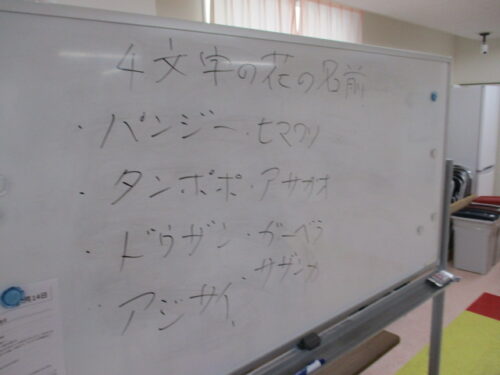 4文字の花の名前
・パンジー・ヒマワリ
・タンポポ・アサガオ
・ドウザン・ガーベラ
・アジサイ・サザンカ
14日